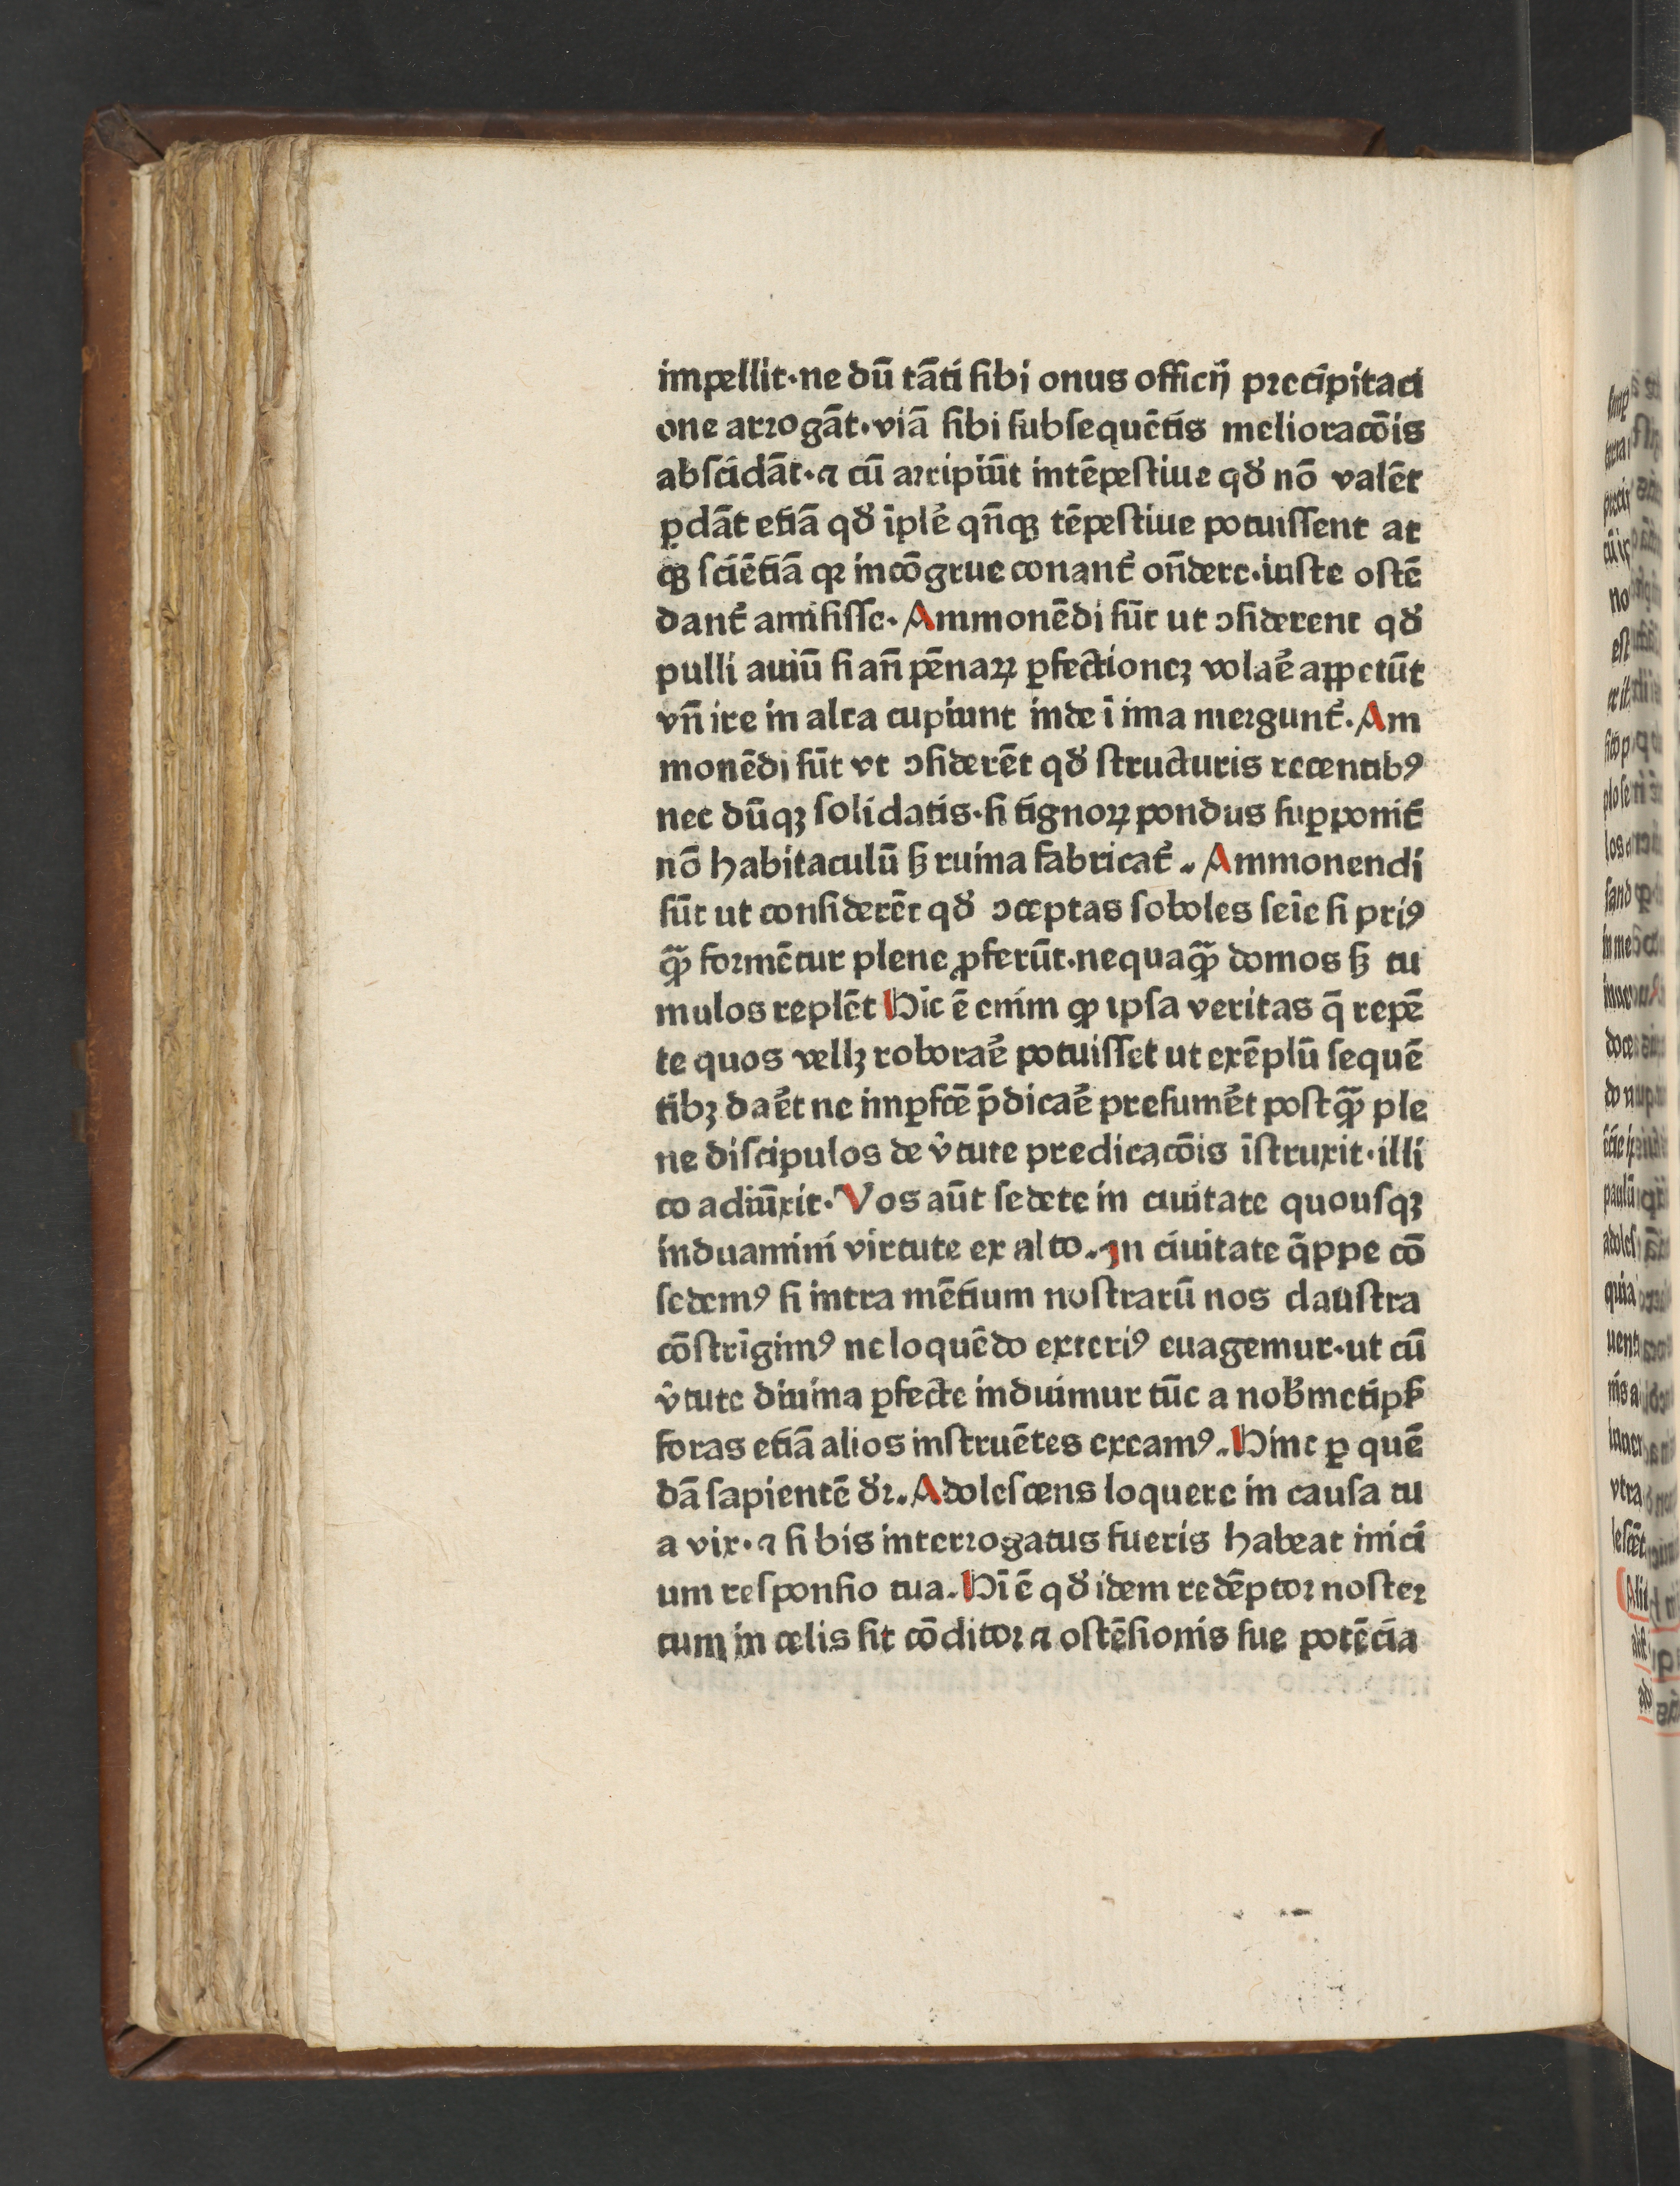 impellit·ne dū tāti ſibi onus officij̄ pꝛecipitaci
one arꝛogāt·viā ſibi ſubſequētis melioracōis
abſcidāt·⁊ cū aꝛripiūt intēpeſtiue qď nō valēt
ꝑdāt etiā qď īplē̓ qn̄qꝫ tēpeſtiue potuiſſent at
qꝫ ſciētiā qꝛ incōgrue conant᷑ on̄dere·iuſte oſtē
dant᷑ amiſiſſe· Ammonēdi ſūt ut ↄſiderent qď
pulli auiū ſi an̄ pēnaꝝ ꝑfectioneꝫ volae̓ appetūt
vn̄ ire in alta cupiunt inde ī ima meꝛgunt᷑. Am
monēdi ſūt vt ↄſiderēt qď ſtructuris recentibꝰ
nec dūqꝫ ſolidatis·ſi tignoꝝ pondus ſuꝑponit᷑
nō habitaculū ſꝫ ruina fabricat᷑. Ammonendi
ſūt ut conſiderēt qď ↄceptas ſoboles feīe ſi priꝰ
qꝫ̄ foꝛmētur plene ꝓferūt·nequaqꝫ̄ domos ſꝫ tu
mulos replēt Hic ē enim qꝙ ipſa veritas q̄ repē
te quos vellꝫ roborae̓ potuiſſet ut exēplū ſequē
tibꝫ dae̓t ne imꝑfcē p̄dicae̓ preſume̓t poſtqꝫ̄ ple
ne diſcipulos de v̑tute predicacōis īſtruxit·illi
co adiūxit· Vos aūt ſedete in ciuitate quouſqꝫ
induamini virtute ex alto. In ciuitate q̄ppe cō
ſedemꝰ ſi intra mētium noſtrarū nos clauſtra
cōſtrīgimꝰ ne loquēdo exteriꝰ euagemur·ut cū
v̑tute diuina ꝑfecte induimur tūc a nob̓metipſ̓
foras etiā alios inſtruētes exeamꝰ. Hinc ꝑ quē
dā ſapientē ďꝛ. Adoleſcens loquere in cauſa tu
a vix·⁊ ſi bis interꝛogatus fueris habeat inici
um reſponſio tua. Hī ē qď idem redēptoꝛ noſteꝛ
cum in celis ſit cōditoꝛ ⁊ oſtēſionis ſue potēcia